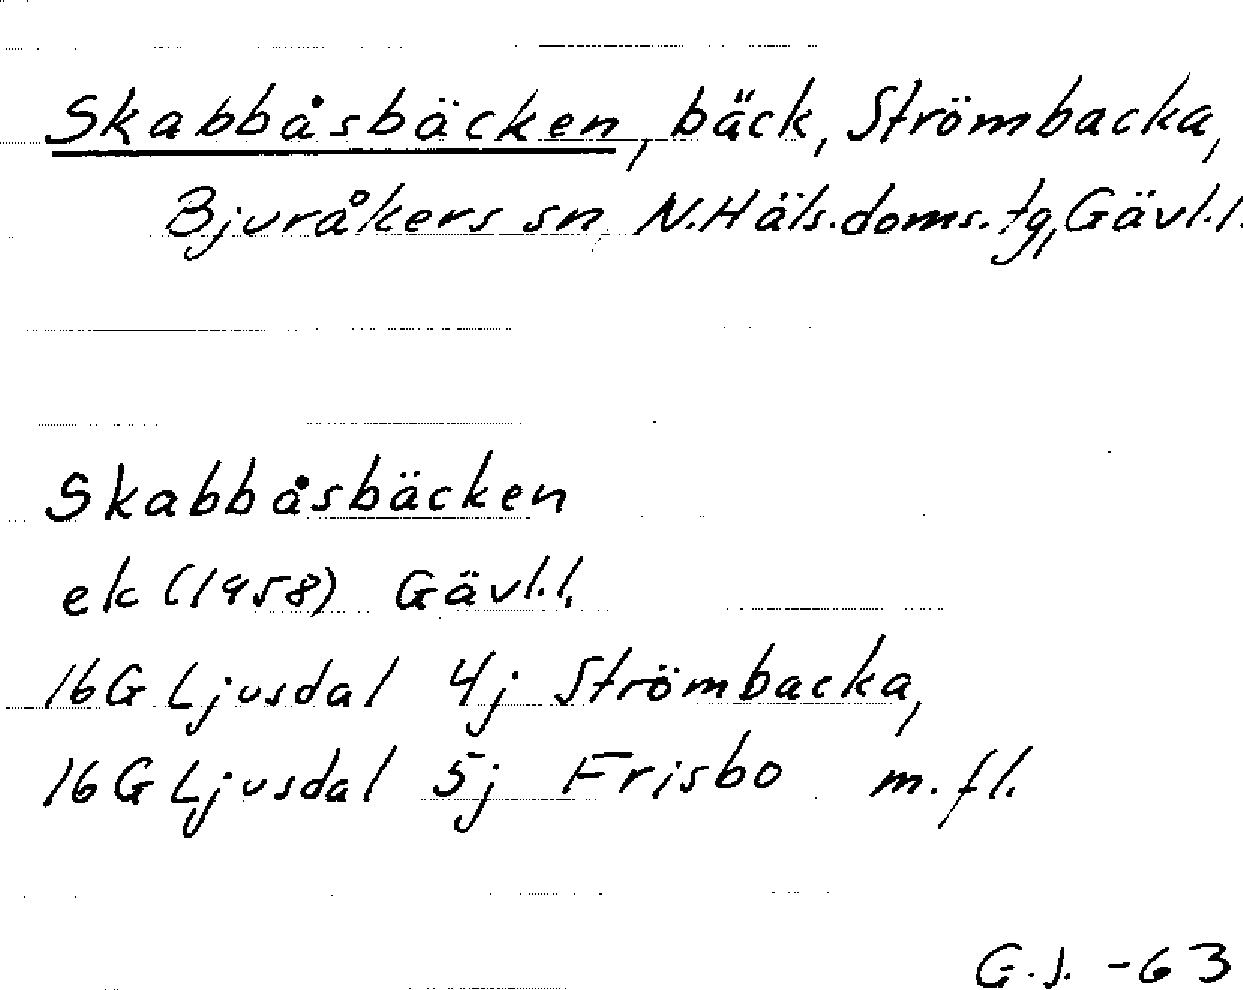 Skabbåsbäcken, bäck, Strömbacka,
Bjuråkers sn, N.Häls.doms.tg, Gävl.l.
Skabbåsbäcken
ek (1958) Gävl.l.
16G Ljusdal 4j Strömbacka,
16G Ljusdal 5j Frisbo m.fl.
G.J. -63